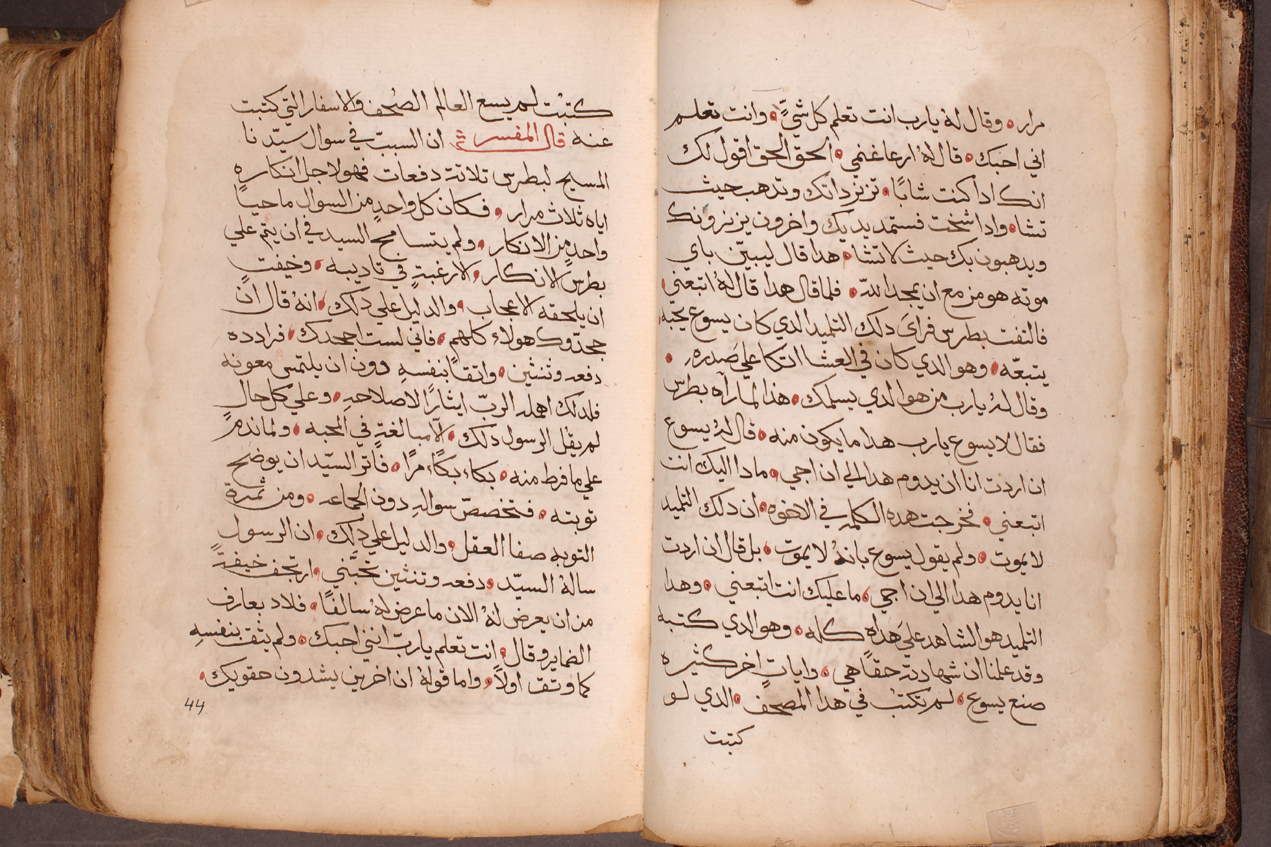 مرار، وقال له يارب انت تعلم كل شي، وانت تعلم
اني احبك، قال له ارعا غنمي، الحق الحق اقول لك
انك ادا كنت شابا، تزنر داتك وتدهب حيث
تشا، وادا شخت فستمد يديك واخرون يزنرونك
ويدهبون بك حيث لا تشا، هدا قال ليبين باي
موته هو مزمع ان يمجد الله، فلما قال هدا قال له اتبعني،
فالتفت بطرس فراى دلك التلميد الدي كان يسوع يحبه،
يتبعه، وهو الدي كان في العشا اتكا على صدره،
وقال له يارب من هو الدي يسلمك، هدا لما راه بطرس
فقال لايسوع يارب هدا ما يكون منه، قال له يسوع
ان اردت انا ان يدوم هدا الي ان اجي، مادا اليك انت
اتبعني، فخرجت هده الكلمه في الاخوه، ان دلك التلميد
لا يموت، ولم يقول يسوع بانه لا يموت، بل قال ان اردت
انا يدوم هدا الي ان اجي، ما عليك انت اتبعني، وهدا
التلميد هو الشاهد على هداه كله، وهو الدي كتبه
وقد علمنا ان شهادته حقا هي، وايات اخر كثيره
صنع يسوع، لم تكتب في هدا المصحف، الدي لو
كتبت
كتبت لم يسع العالم الصحف والاسفار التي كتبت
عنه قال المفسر ان السبب في سوال سيدنا
المسيح لبطرس ثلاثة دفعات فهو لاجل انكاره
اياه ثلاث مرار، فكان كل واحد من السوال ماحيا
واحد من الانكار، ولم يتسامح السيد في ان يتم علي
بطرس الانكار، الا رغبة في تاديبه، وخيفت
ان يلحقه الاعجاب، والدليل علي دلك، انه قال ان
جحدوك هولاء كلهم، فاني لست اجحدك، فردده
دفعه وثنتين، واثقا بنفسه دون ان يلتمس معونه
فلدلك اهمله الرب ايثارا لاصلاحه، وعلي كل حال
لم يقل الرسول دلك، الا مبالغة في المحبه، ولما ندم
علي ما فرط منه، بكاء بكاء مرا، فاثر السيد ان يوضح
توبته، فتخصص سواله دون الجماعه، ومن ثمرة
التوبه صفا العقل، والدليل علي دلك، ان الرسول
ساله السيد، دفعه وثنتين تحبني، ارتجف خيفة
من ان يعرض له الان ما عرض له سالفا، فلاد بعارف
الضماير وقال، انت تعلم يارب انني احبك، ولم يثق بنفسه
كما وثق اولا، واما قوله ان اخرين يشدون حقويك،
44